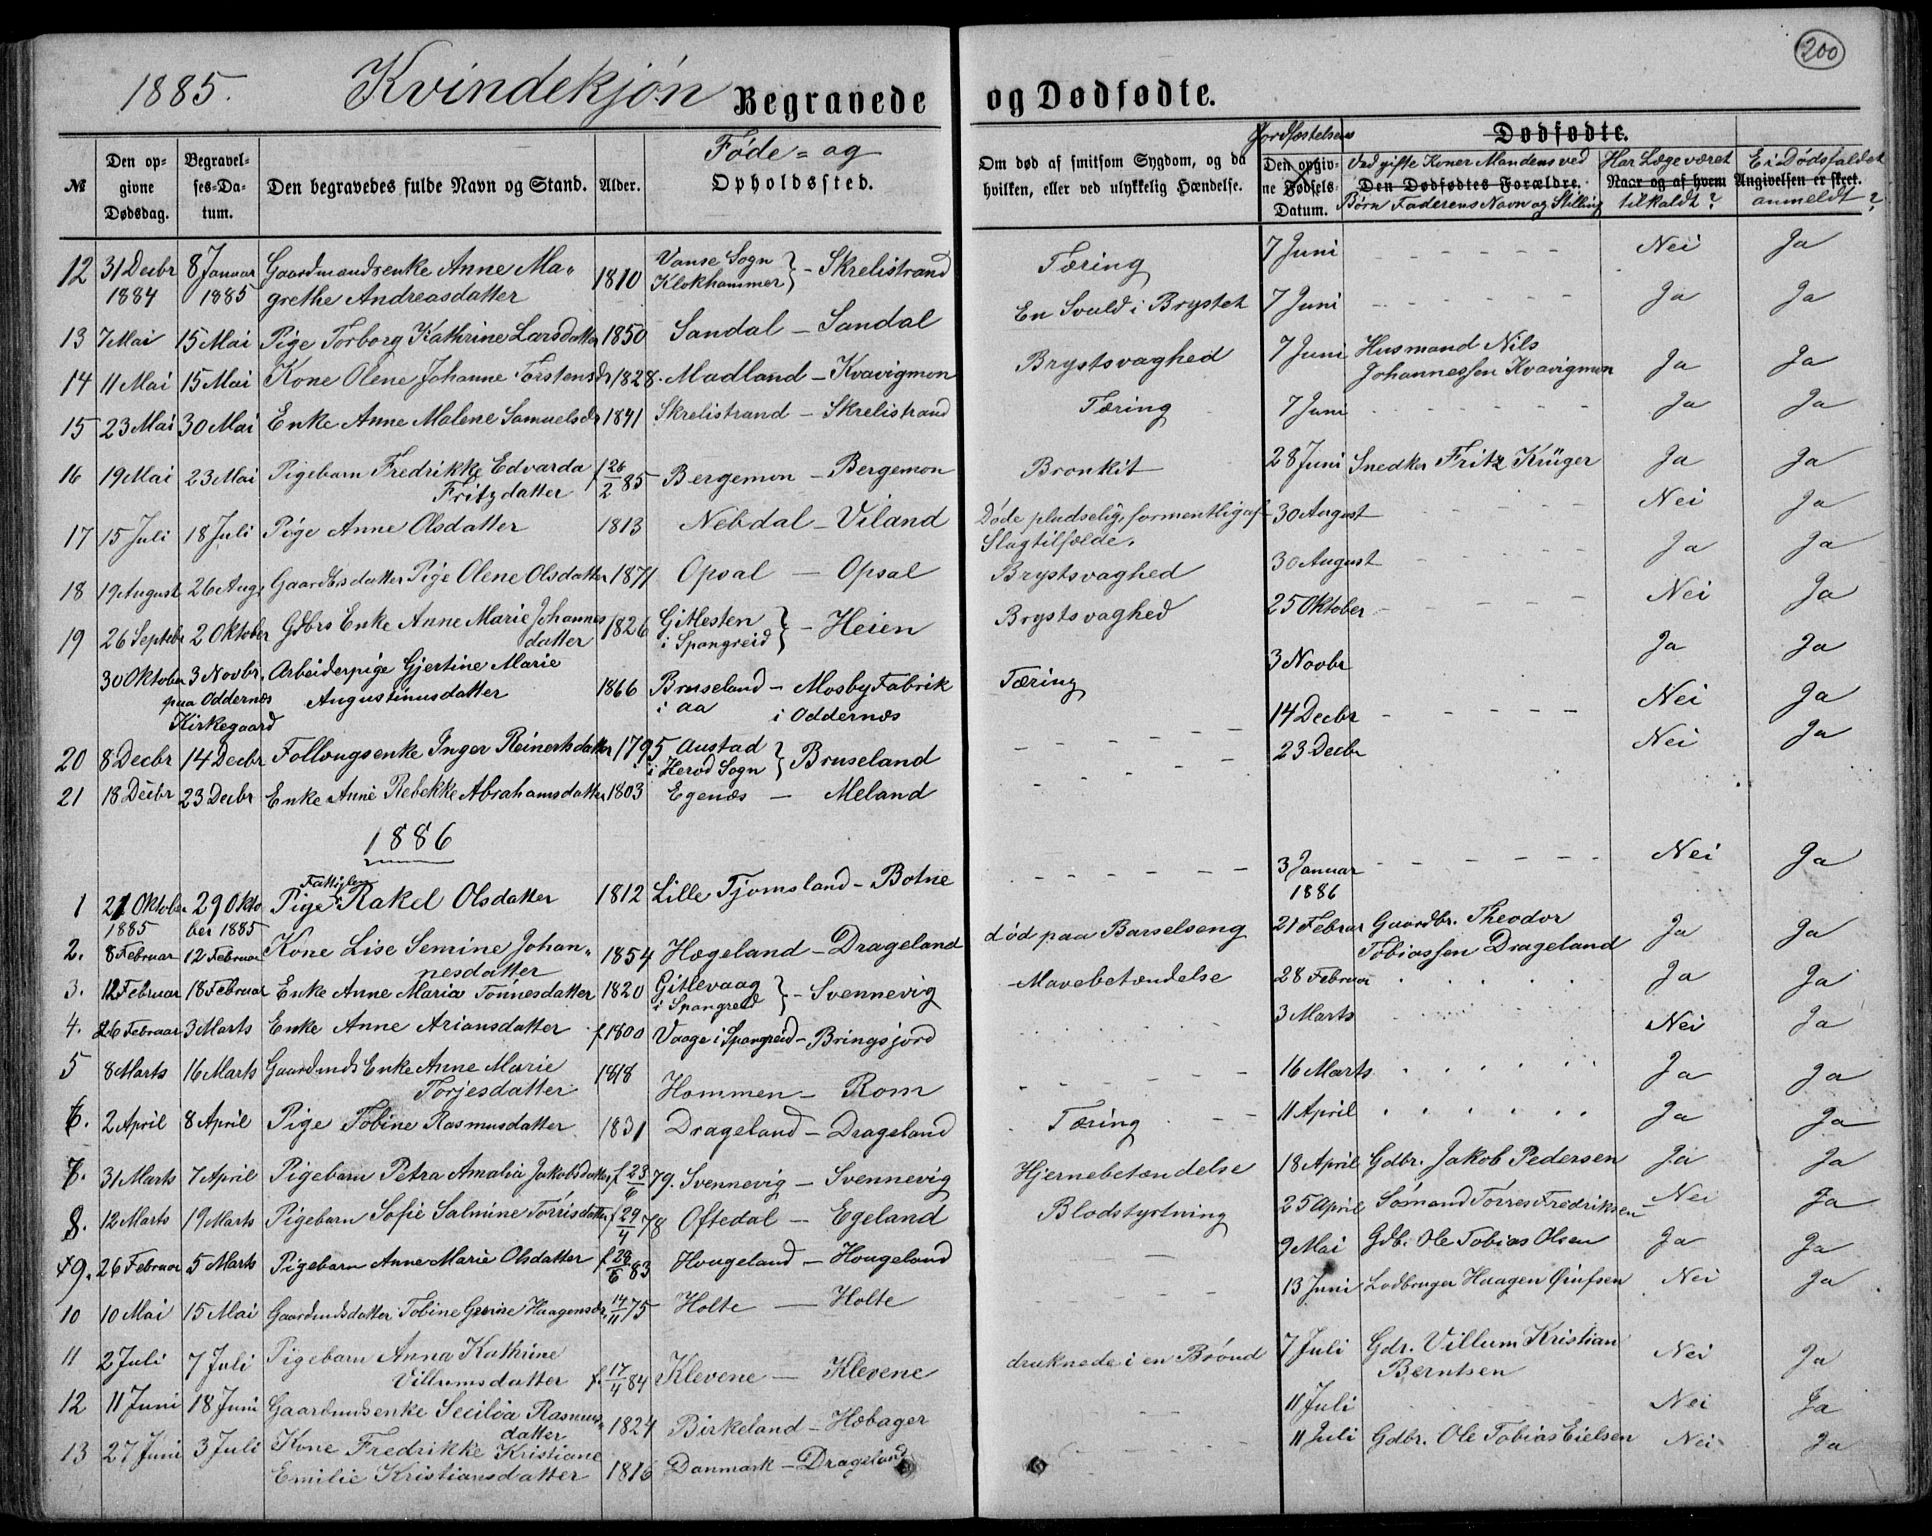 200
1885. Kvindekjøn Begravede og Dødfødte.
№ Den opgivne Dødsdag. Begravelses-Datum. Den begravedes fulde Navn og Stand. Alder. Føde- og Opholdssted. Om død af smitsom Sygdom, og da hvilken, eller ved ulykkelig Hændelse. Jordfæstelsens Den opgivne Fødsels-Datum. Dødfødte. Ved gifte Koner Mandens ved Den Dødfødtes Forældre. Børn Faderens Navn og Stilling Har Læge været Naar og af hvem tilkaldt? Er Dødsfaldet Angivelsen er skeet. anmeldt?
12 31 Decbr 1884 8 Januar 1885 Gaardmandsenke Anne Magrethe Andreasdatter 1810 Vanse Sogn Klokhammer } - Skrelistrand Tæring 7 Juni - - - - Nei Ja
13 7 Mai 15 Mai Pige Torborg Kathrine Larsdatter 1850 Sandal - Sandal En Svuld i Brystet 7 Juni - - - - Ja Ja
14 11 Mai 15 Mai Kone Olene Johanne Torstensd. 1828. Madland - Kvavigmon Brystsvaghed 7 Juni Husmand Nils Johannessen Kvavigmon Ja Ja
15 23 Mai 30 Mai Enke Anne Malene Samuelsdr 1841 Skrelistrand - Skrelistrand Tæring 7 Juni - - - - Ja Ja
16 19 Mai 23 Mai Pigebarn Fredrikke Edvarda Fritzdatter f 26/2 85 Bergemon - Bergemon Bronkit 28 Juni Snedker Fritz Krüger Ja Ja
17 15 Juli 18 Juli Pige Anne Olsdatter 1813 Nebdal - Viland Døde pludselig, formentlig af Slagtilfælde. 30 August - - - - Nei Ja
18 19 August 26 Aug. Gaardbrsdatter Pige Olene Olsdatter 1871 Opsal - Opsal Brystsvaghed 30 August - - - - Ja Ja
19 26 Septebr 2 Oktober Gdbrs Enke Anne Marie Johannesdatter 1826 Gitlesten i Spangreid } - Heien Brystsvaghed 25 Oktober - - - - Nei Ja
30 Oktober 3 Novbr. paa Oddernæs Kirkegaard Arbeiderpige Gjertine Marie Augustinusdatter 1866 Bruseland i Aa - Mosby Fabrik i Oddernæs Tæring 3 Novbr Ja Ja
20 8 Decbr 14 Decbr Follougsenke Inger Reinertsdatter 1795 Austad i Herod Sogn } Bruseland - - - - 14 Decbr - - - - Nei Ja
21 18 Decbr 23 Decbr Enke Anne Rebekke Abrahamsdatter 1803 Egenæs - Meland - - - - 23 Decbr Nei Ja
1886
1 21 Oktober 1885 29 Oktober 1885 Fattiglem Pige Rakel Olsdatter 1812 Lille Tjomsland - Botne - - - - 3 Januar 1886 - - - - Nei Ja
2. 8 Februar 12 Februar Kone Lise Semine Johannesdatter 1854 Hægeland - Drageland død paa Barselseng 21 Februar Gaardbr. Theodor Tobiassen Drageland Ja Ja
3. 12 Februar 18 Februar Enke Anne Maria Tønnesdatter 1820 Gitlevaag i Spangreid } - Svennevig Mavebetændelse 28 Februar . . . . Ja Ja
4. 26 Februar 3 Marts Enke Anne Ariansdatter f 1800 Vaage i Spangreid - Bringsjord 3 Marts Nei Ja
5 8 Marts 16 Marts Gaardmds Enke Anne Marie Torjesdatter 1818 Hommen - Rom - - - - 16 Marts . . . . Ja Ja
6. 2 April 8 April Pige Tobine Rasmusdatter 1831 Drageland - Drageland Tæring 11 April . . . . Ja Ja
7. 31 Marts 7 April Pigebarn Petra Amalia Jakobsdatter f 23/6 79. Svennevig - Svennevig Hjernebetændelse 18 April Gdbr. Jakob Pedersen Ja Ja
8. 12 Marts 19 Marts Pigebarn Sofie Salmine Torrisdatter f 29/4 78 Oftedal - Egeland Blodstyrtning 25 April Sømand Torres Fredriksen Nei Ja
9. 26 Februar 5 Marts Pigebarn Anne Marie Olsdatter f 26/6 83 Hougeland - Hougeland - 9 Mai Gdb. Ole Tobias Olsen Ja Ja
10 10 Mai 15 Mai Gaardmdsdatter Tobine Gurine Haagensdr. 14/11 75 Holte - Holte - - - 13 Juni Lodbruger Haagen Øiufsen Nei Ja
11 2 Juli 7 Juli Pigebarn Anna Kathrine Villumsdatter f. 17/4 84 Klevene - Klevene druknede i en Brønd 7 Juli Gdr. Villum Kristian Berntsen Nei Ja
12 11 Juni 18 Juni Gaardmdsenke Secilia Rasmusdatter 1824 Birkeland - Hæbager - - - - 11 Juli Nei Ja
13 27 Juni 3 Juli Kone Fredrikke Kristiane Emilie Kristiansdatter 1816 Danmark - Drageland - - - - 11 Juli Gdbr. Ole Tobias Eielsen Nei Ja